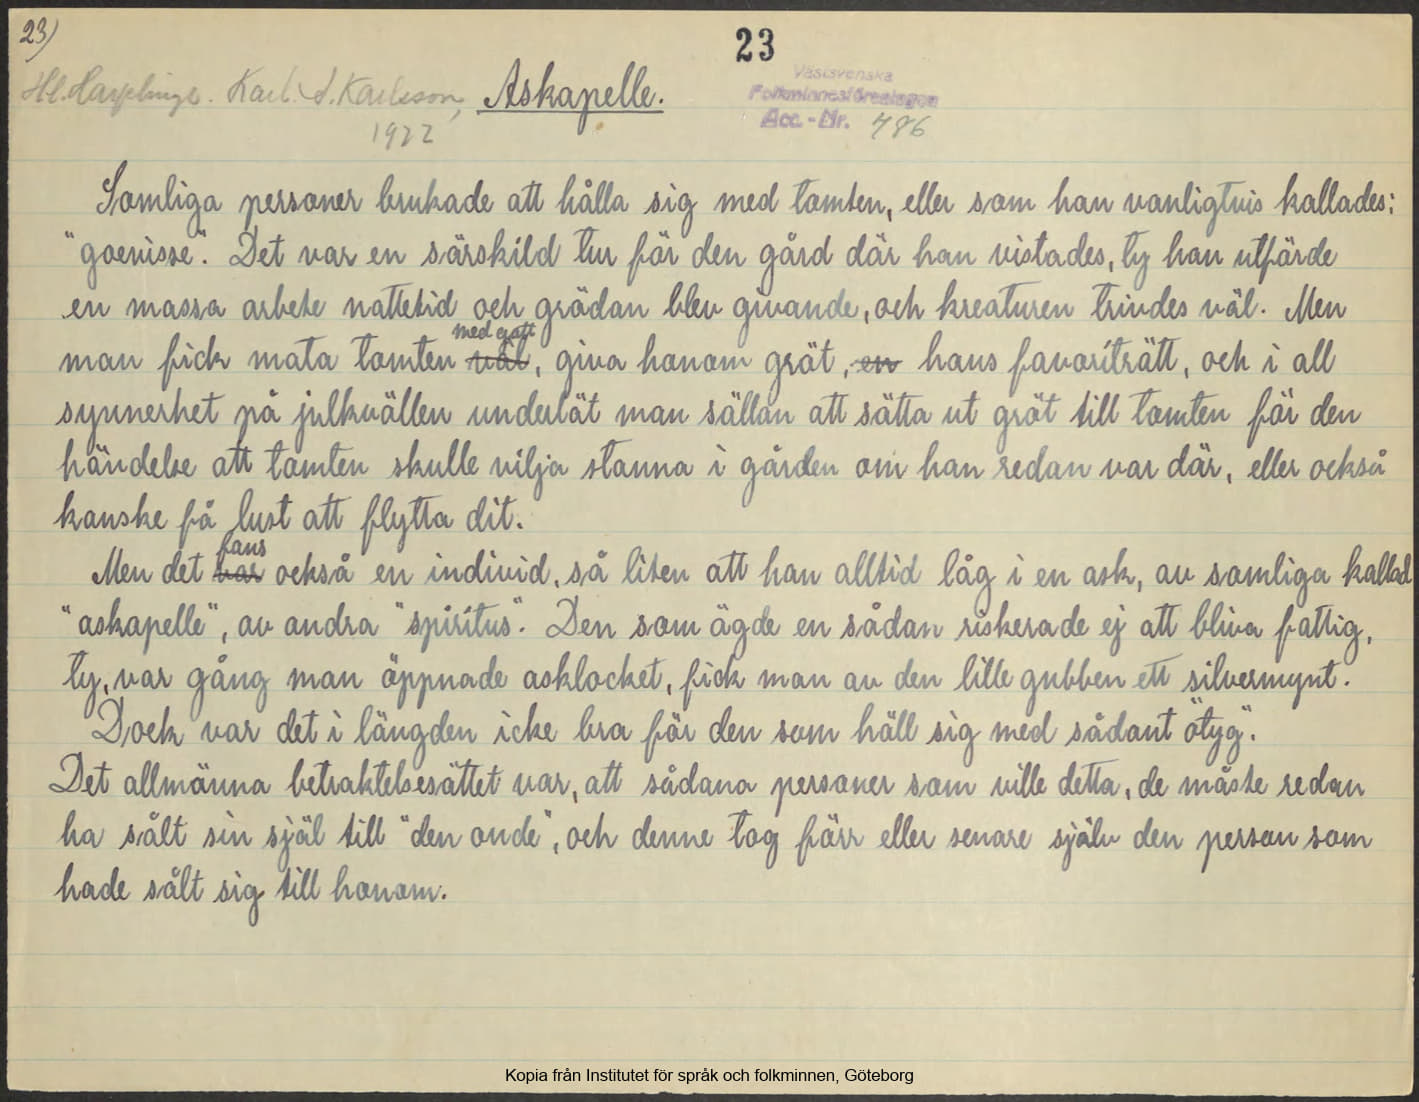 23)
23
Hl. Harplinge. Karl. J. Karlsson,
1922
Askapelle.
Västsvenska
Folkminnesföreningen
Acc.-Nr. 786
Somliga personer brukade att hålla sig med tomten, eller som han vanligtvis kallades:
"goenisse". Det var en särskild tur för den gård där han vistades, ty han utförde
en massa arbete nattetid och grödan blev givande, och kreaturen trivdes väl. Men
man fick mata tomten väl med gott, giva honom gröt, en hans favoriträtt, och i all
synnerhet på julkvällen underlät man sällan att sätta ut gröt till tomten för den
händelse att tomten skulle vilja stanna i gården om han redan var där, eller också
kanske få lust att flytta dit.
Men det var fans också en individ, så liten att han alltid låg i en ask, av somliga kallad
"askapelle", av andra "spiritus". Den som ägde en sådan riskerade ej att bliva fattig,
ty, var gång man öppnade asklocket, fick man av den lille gubben ett silvermynt.
Dock var det i längden icke bra för den som höll sig med sådant "otyg".
Det allmänna betraktelsesättet var, att sådana personer som ville detta, de måste redan
ha sålt sin själ till "den onde", och denne tog förr eller senare själv den person som
hade sålt sig till honom.
Kopia från Institutet för språk och folkminnen, Göteborg